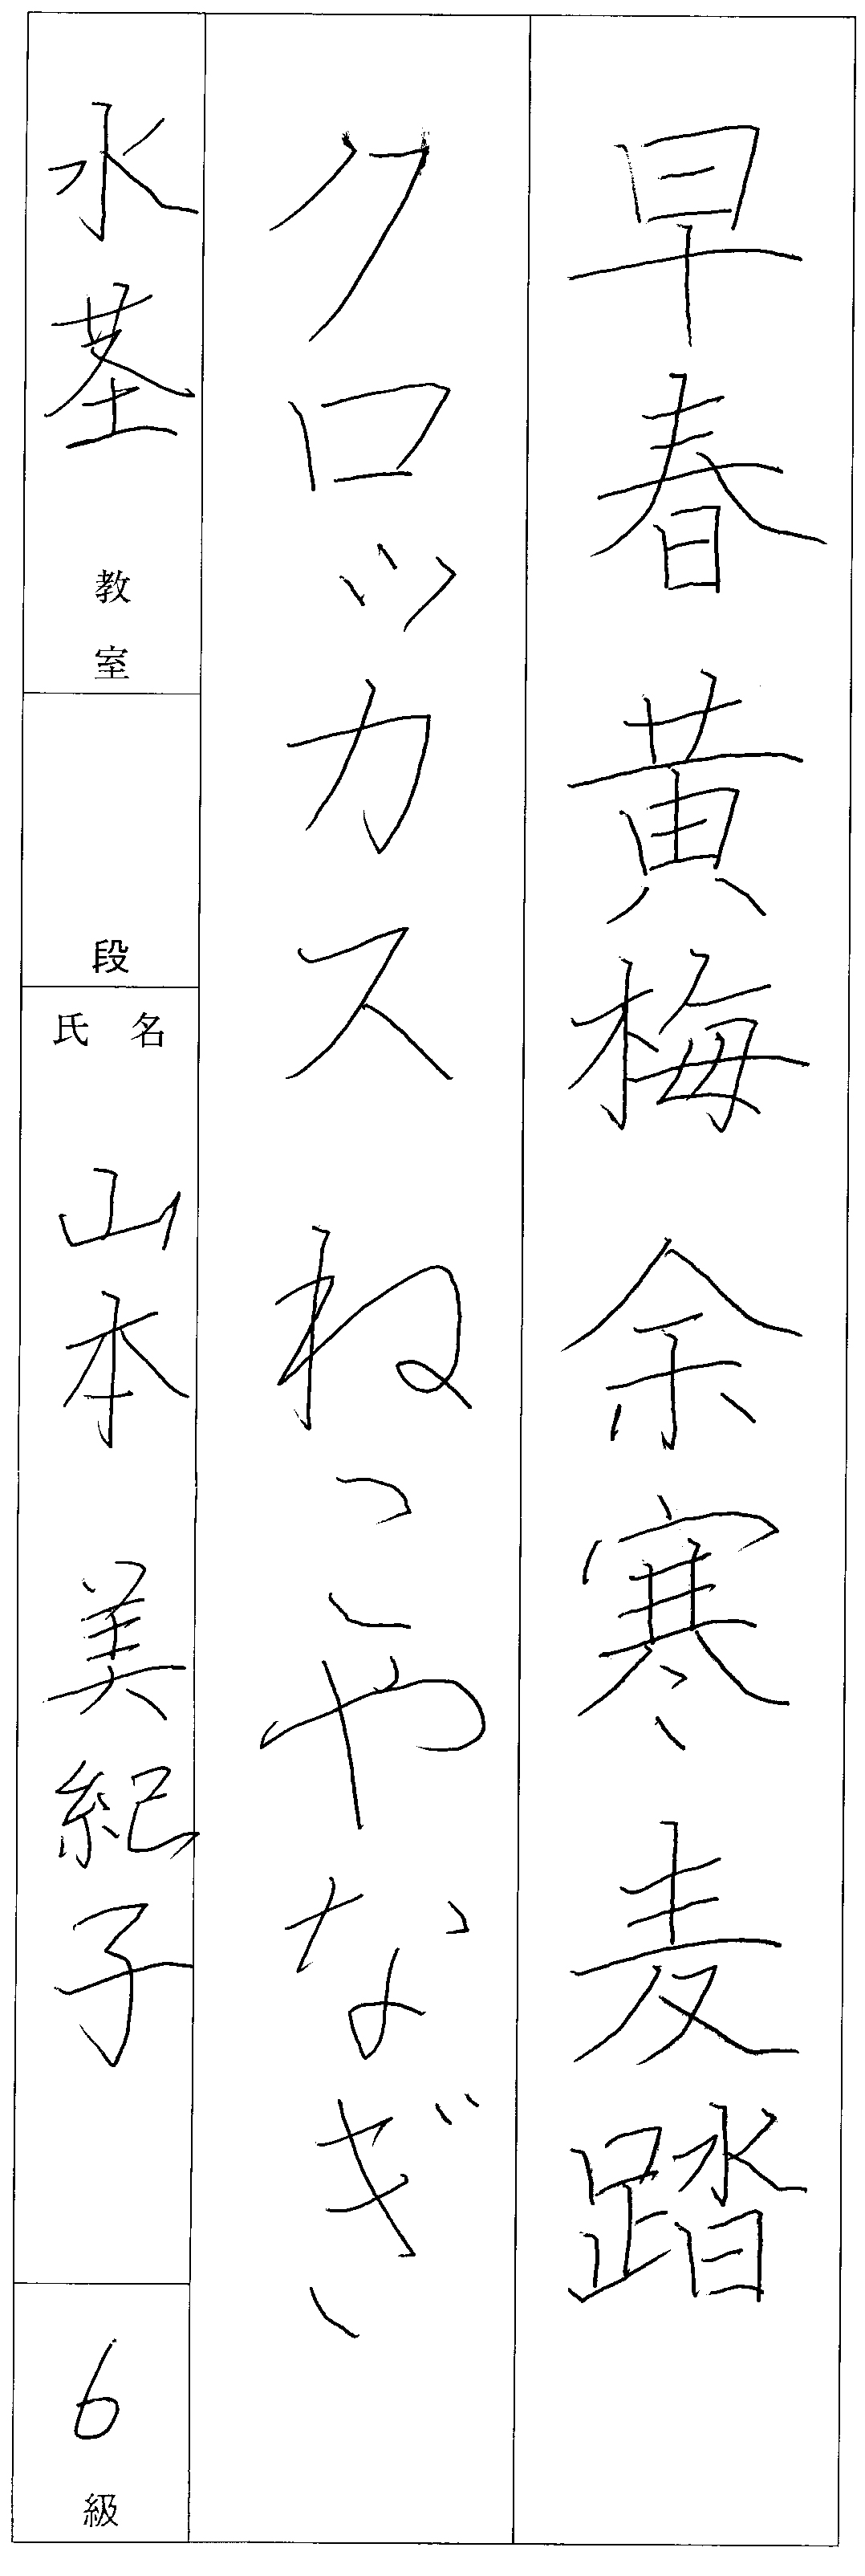 早春 黄梅 余寒 麦踏
クロッカス ねこやなぎ
水茎 教室
段
氏名 山本 美紀子
6 級